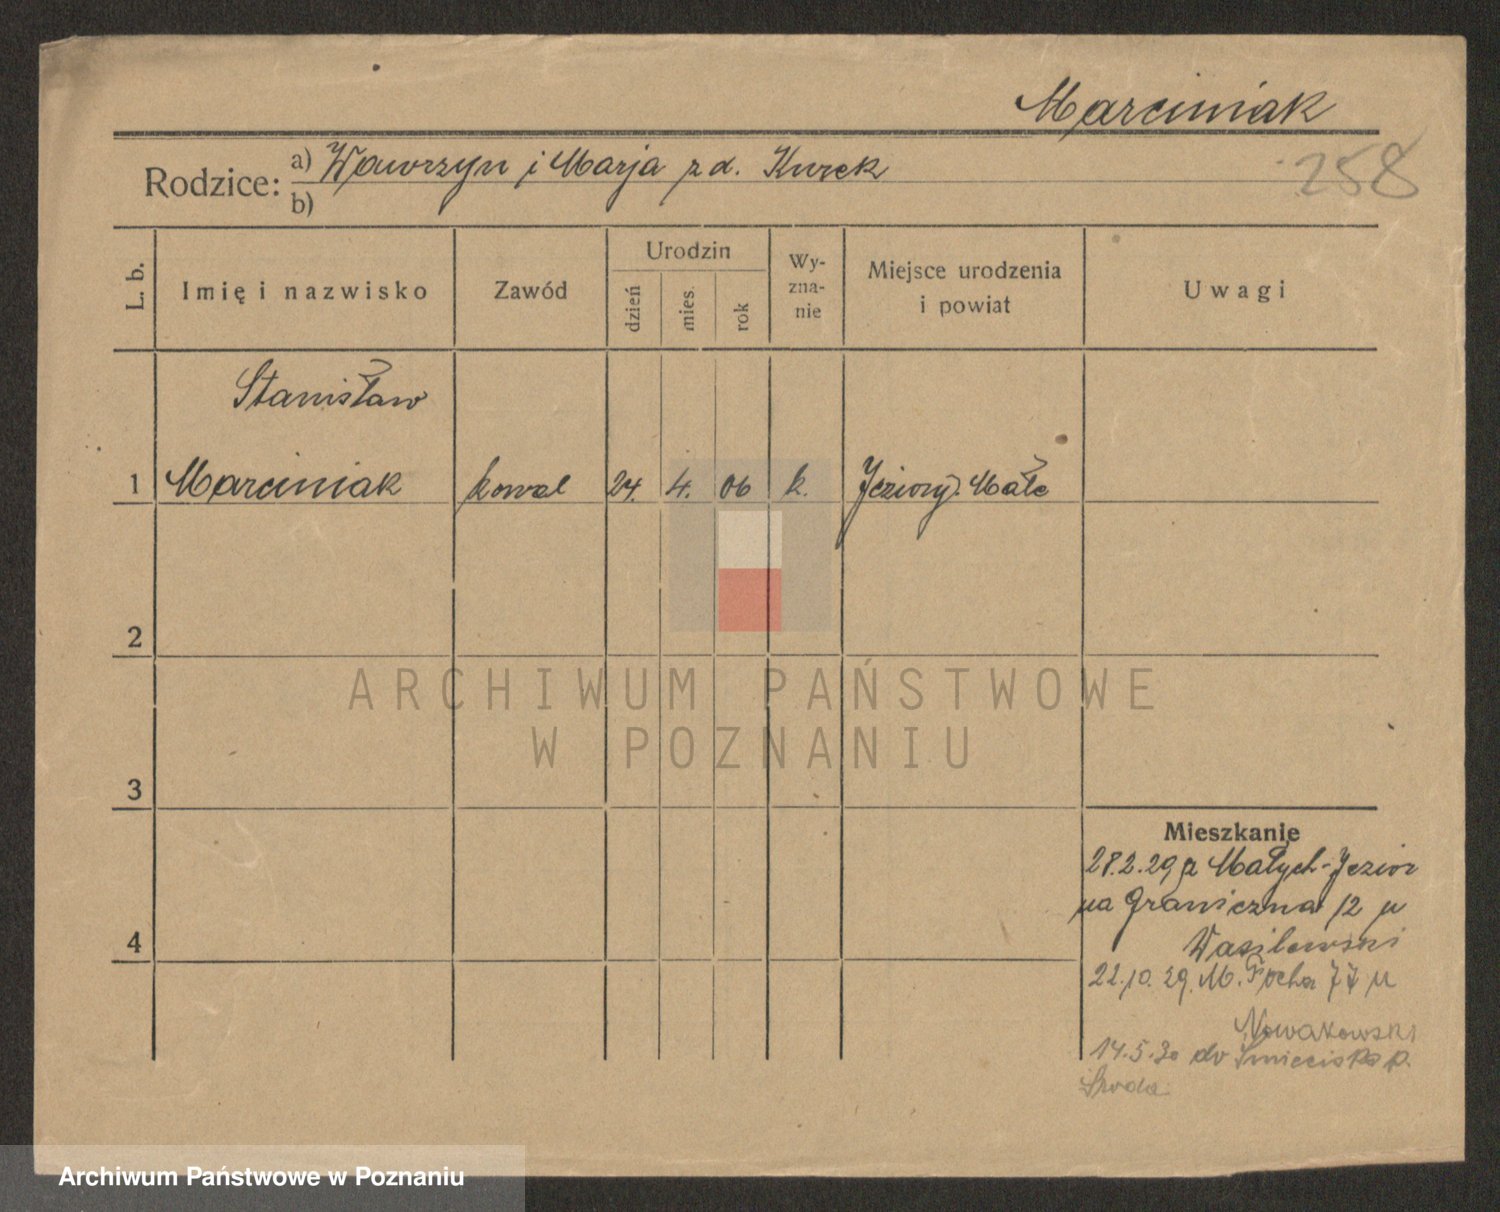 Marciniak
258
Rodzice: a) Wawrzyn i Marja z d. Kurek
b)
L. b.
Imię i nazwisko
Zawód
Urodzin
dzień
mies.
rok
Wy-
zna-
nie
Miejsce urodzenia
i powiat
Uwagi
Stanisław
1 Marciniak kowal 24. 4. 06 k. Jeziory Małe
2
3
4
Mieszkanie
28.2.29 z Małych-Jezior
na Graniczna 12 u
Wasilewski
22.10.29. M. Focha 77 u
Nowakowski
14.5.30 do Śmieciska p.
Środa
ARCHIWUM PAŃSTWOWE
W POZNANIU
Archiwum Państwowe w Poznaniu